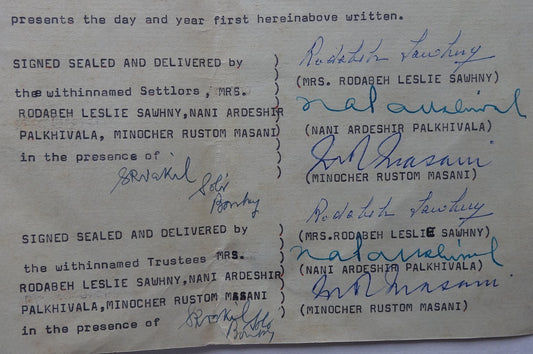 presents the day and year first hereinabove written.
SIGNED SEALED AND DELIVERED by )
the withinnamed Settlors, MRS. )
RODABEH LESLIE SAWHNY,NANI ARDESHIR )
PALKHIVALA, MINOCHER RUSTOM MASANI )
in the presence of )
Rodabeh Sawhny
(MRS. RODABEH LESLIE SAWHNY)
(NANI ARDESHIR PALKHIVALA)
M R Masani
(MINOCHER RUSTOM MASANI)
SRVakil
Bombay
SIGNED SEALED AND DELIVERED by )
the withinnamed Trustees MRS. )
RODABEH LESLIE SAWHNY,NANI ARDESHIR )
PALKHIVALA,MINOCHER RUSTOM MASANI )
in the presence of )
Rodabeh Sawhny
(MRS.RODABEH LESLIE SAWHNY)
(NANI ARDESHIR PALKHIVALA)
M R Masani
(MINOCHER RUSTOM MASANI)
SRVakil
Bombay